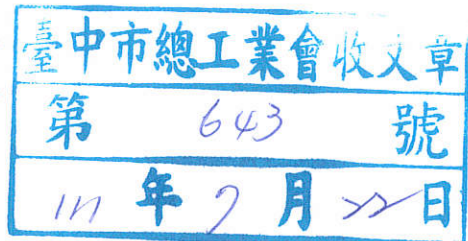 臺中市總工業會收文章
第 643 號
111 年 7 月 22 日